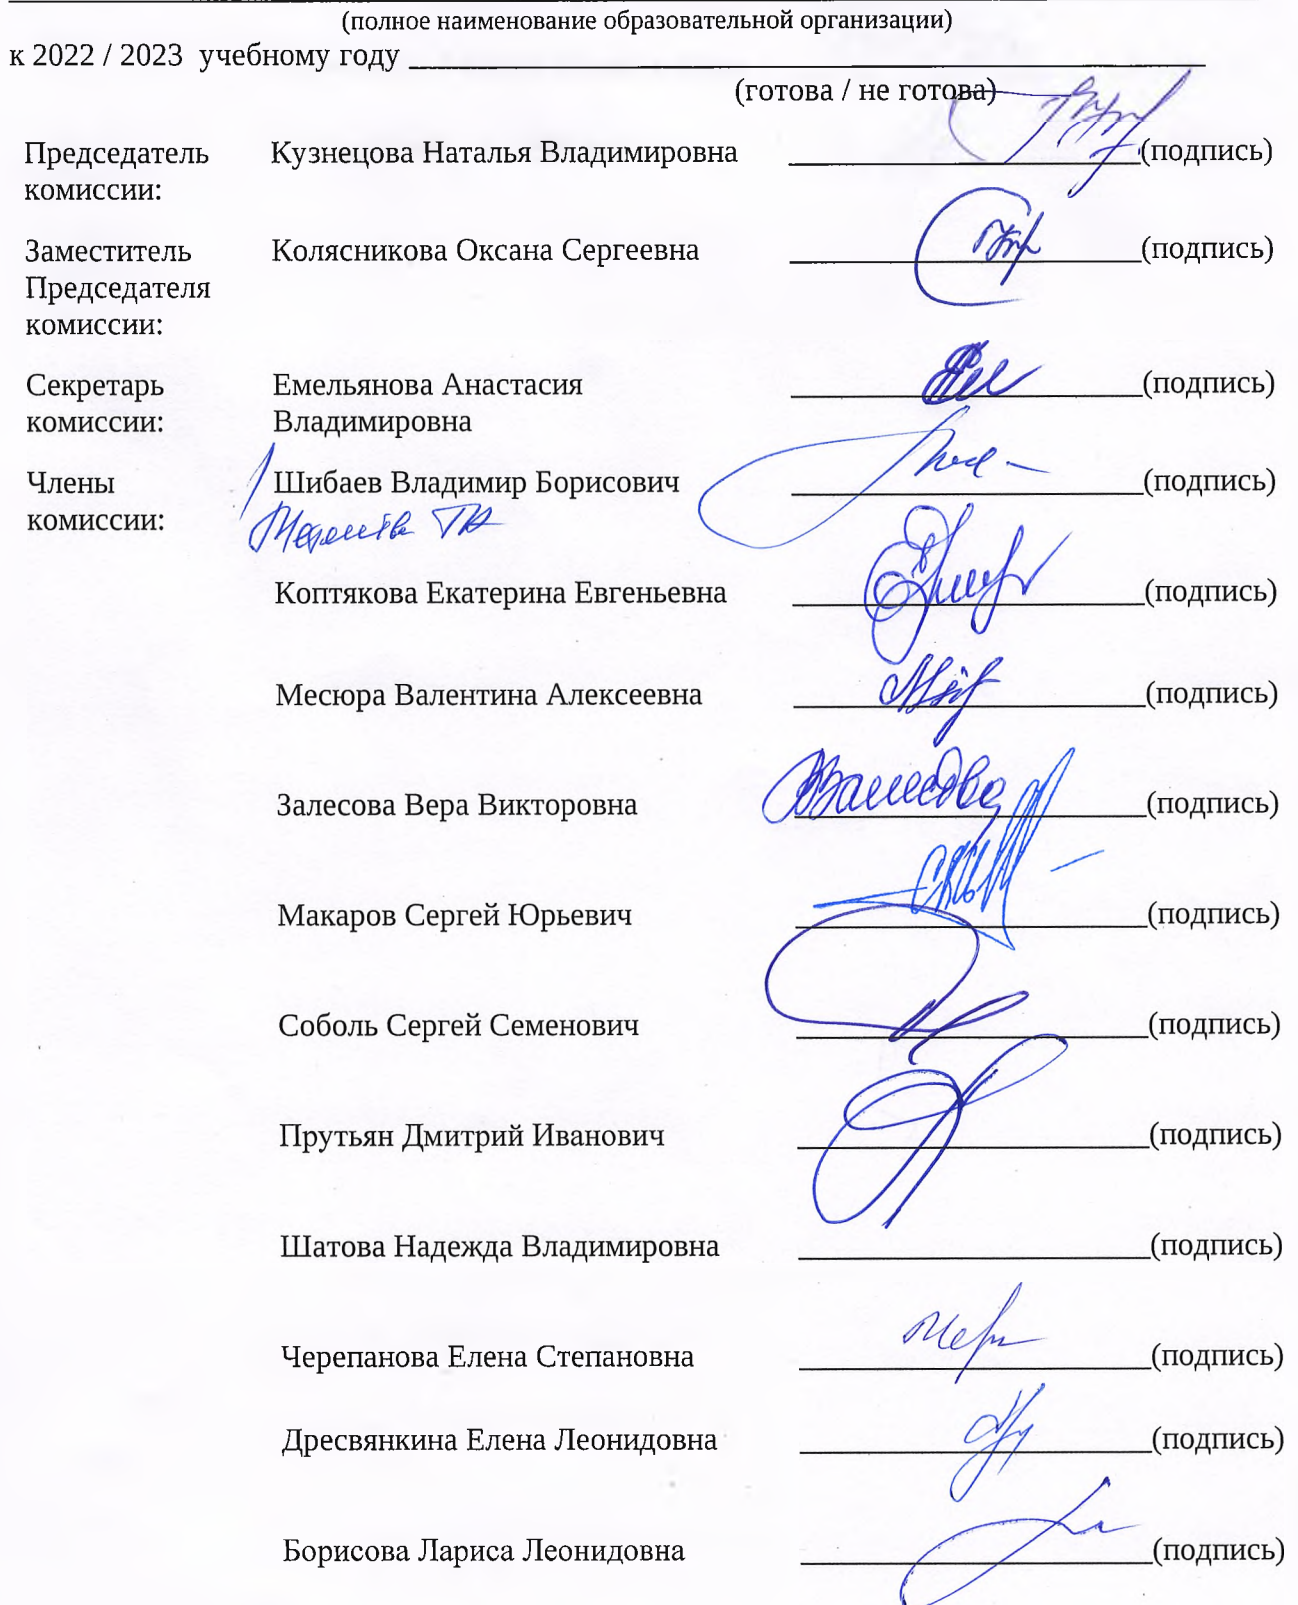 (полное наименование образовательной организации)
к 2022 / 2023 учебному году
(готова / не готова)
Председатель Кузнецова Наталья Владимировна (подпись)
комиссии:
Заместитель Колясникова Оксана Сергеевна (подпись)
Председателя
комиссии:
Секретарь Емельянова Анастасия (подпись)
комиссии: Владимировна
Члены Шибаев Владимир Борисович (подпись)
комиссии:
Коптякова Екатерина Евгеньевна (подпись)
Месюра Валентина Алексеевна (подпись)
Залесова Вера Викторовна (подпись)
Макаров Сергей Юрьевич (подпись)
Соболь Сергей Семенович (подпись)
Прутьян Дмитрий Иванович (подпись)
Шатова Надежда Владимировна (подпись)
Черепанова Елена Степановна (подпись)
Дресвянкина Елена Леонидовна (подпись)
Борисова Лариса Леонидовна (подпись)